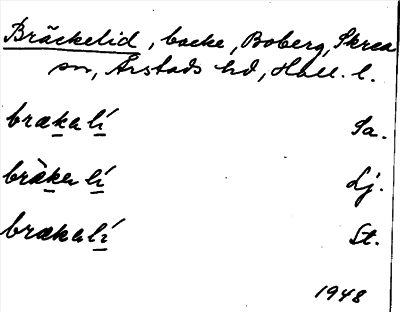 Bräckelid, backe, Boberg, Skrea
sn, Årstads hd, Hall. l.
brækalí Sa.
brǽkalí Lj.
brækalí St.
1948